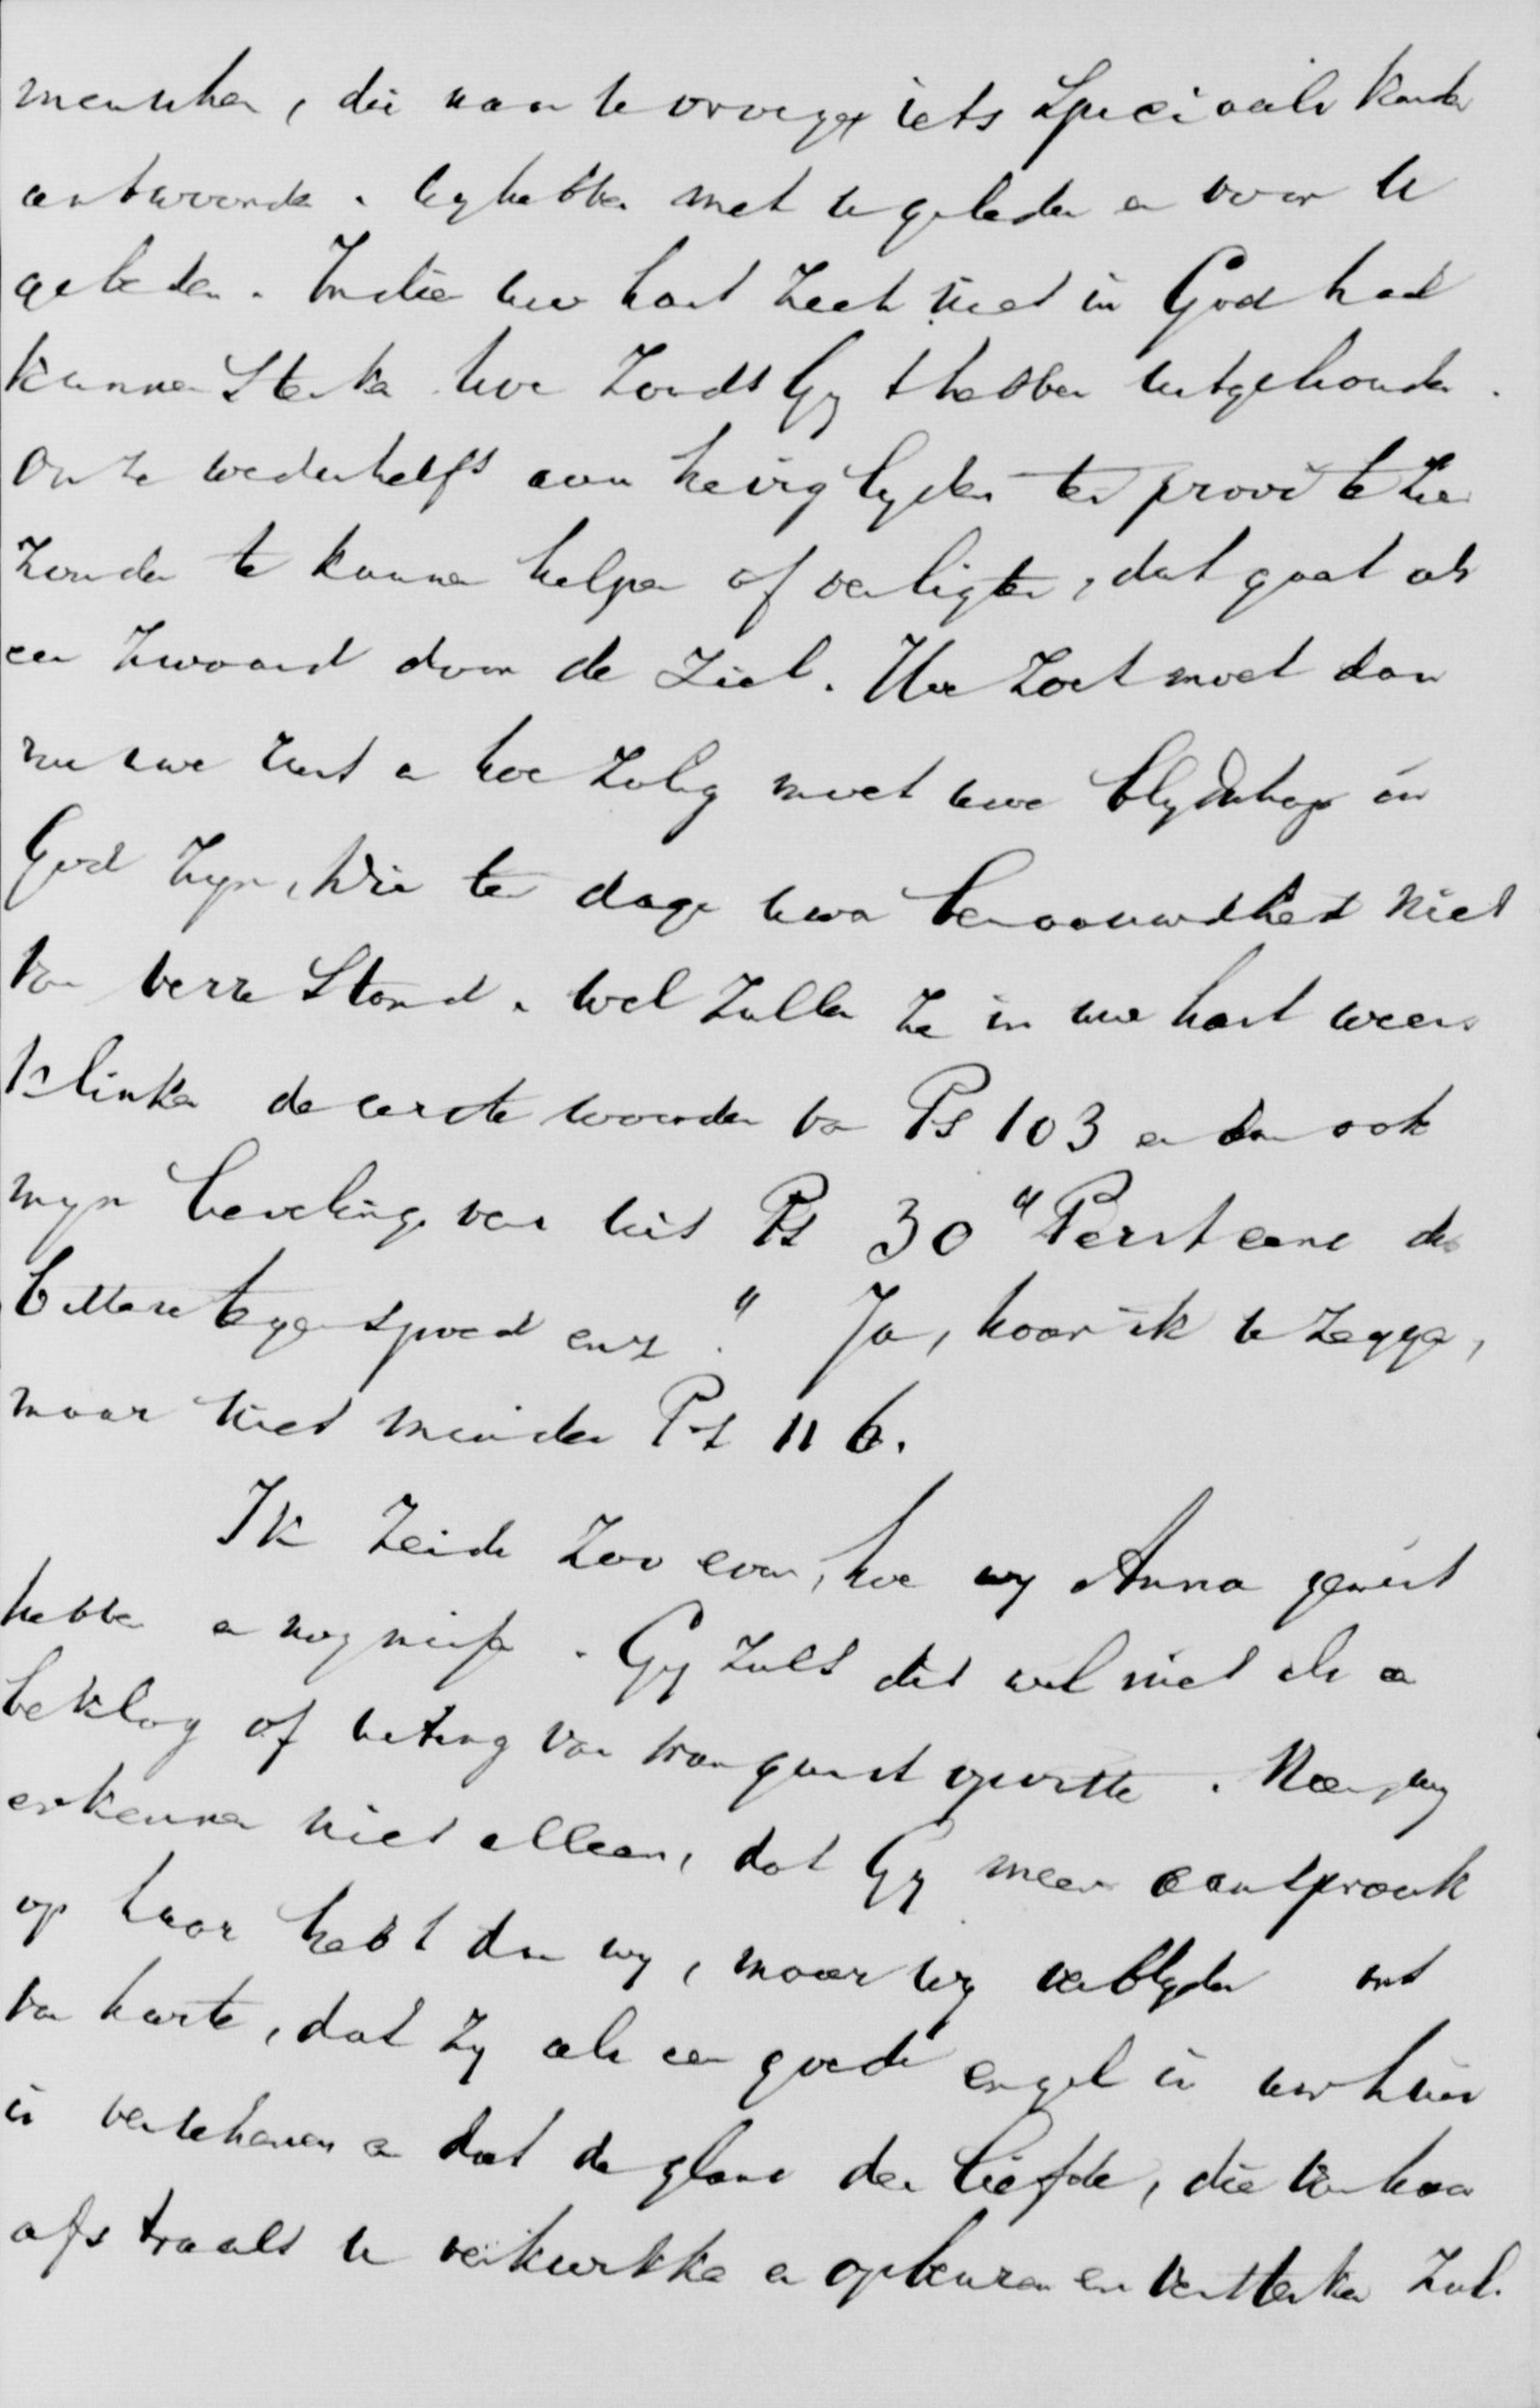 menschen, die naar U vroegen iets speciaals konden
antwoorden. Wy hebben met U geleden en voor U
gebeden. Indien uw hart zich niet in God had
kunnen sterken hoe zoudt Gy 't hebben uitgehouden.
Onze wederhelft aan hevig lyden ter prooi te zien
zonder te kunnen helpen of verligten, dat gaat als
een zwaard door de ziel. Hoe zoet moet dan
nu uwe rust en hoe zalig moet uwe blydschap in
God zyn, die ten dage uwer benaauwdheid niet
van verre stond. Wel zullen ze in uw hart weer
klinken de eerste woorden van Ps 103 en dan ook
myn lievelingsvers uit Ps 30 "Perst eens de
bittere tegenspoed enz." Ja, hoor ik U zeggen,
maar niet minder Ps 116.
Ik zeide zoo even, hoe wy Anna gemist
hebben en nog missen. Gy zult dit wel niet als een
beklag of uiting van wangunst opvatten. Neen, wy
erkennen niet alleen, dat Gy meer aanspraak
op haar hebt dan wy, maar wy verblyden ons
van harte, dat zy als een goede engel in uw huis
is verschenen en dat de glans der liefde, die van haar
afstraalt U verkwikken en opbeuren en versterken zal.